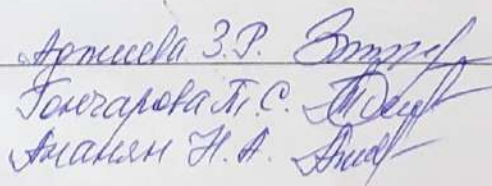 Артиева З.Р.
Гончарова Т.С.
Ананян Н.А.